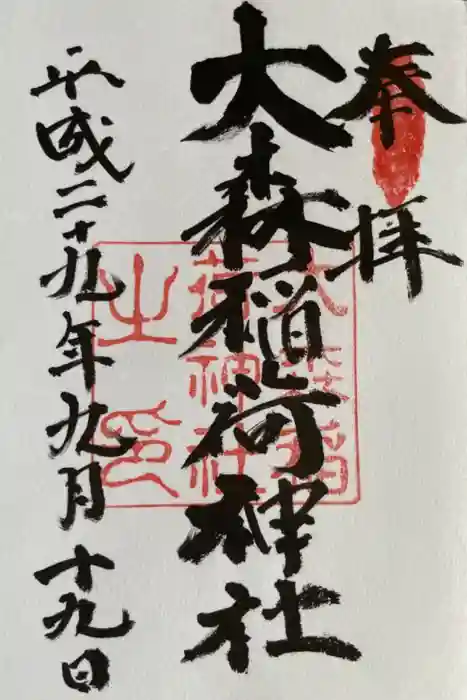 奉拝
大森稲荷神社
平成二十九年九月十九日
大森稲
荷神社
之印